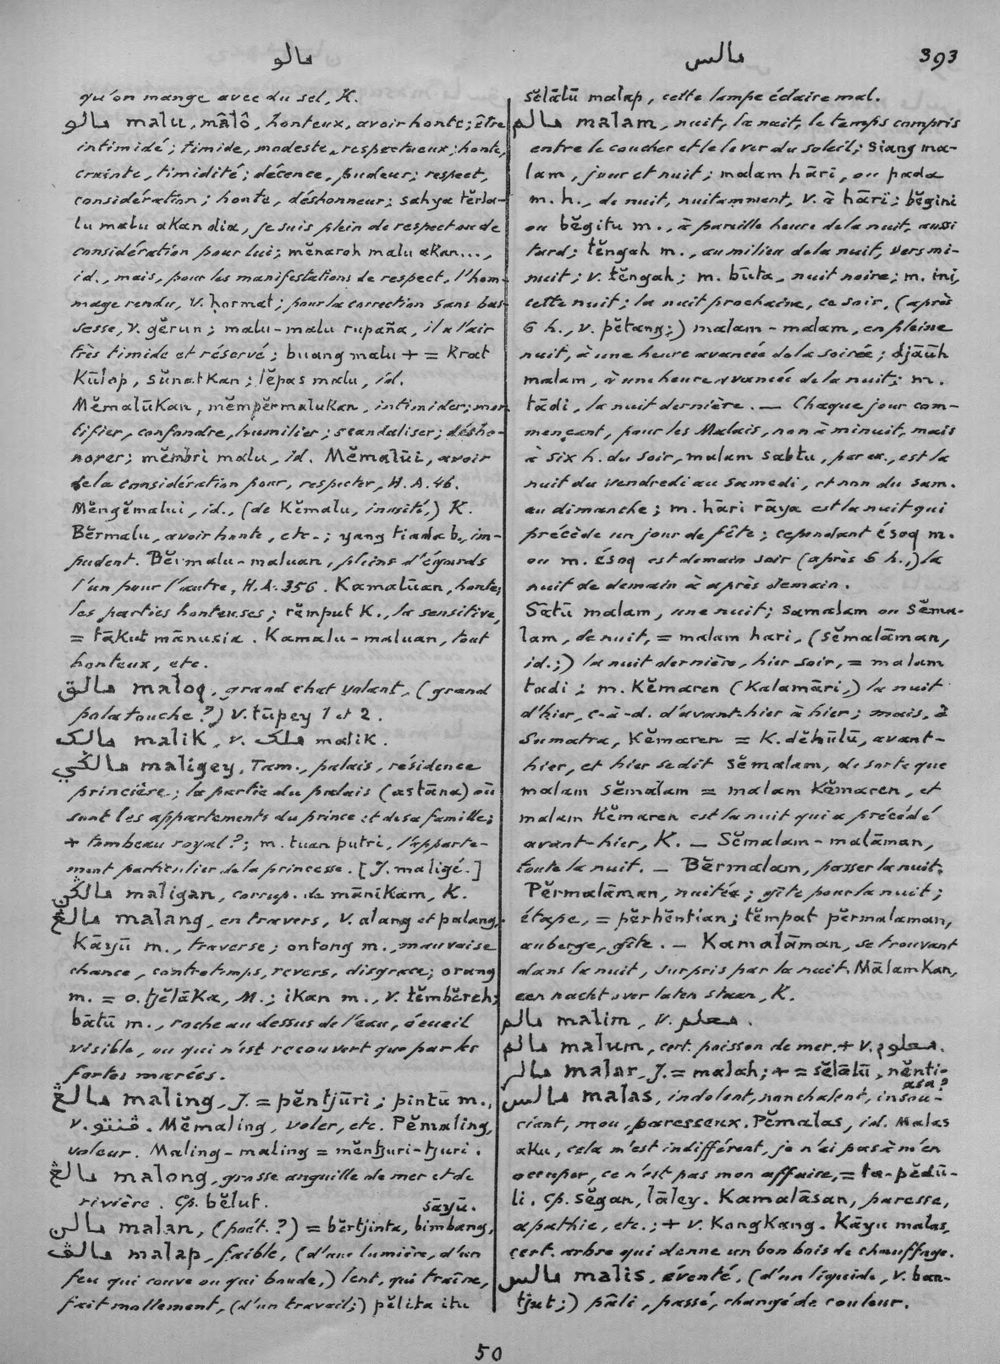 مالو
مالس
393
qu'on mange avec du sel, K.
مالو malu, mâlô, honteux, avoir honte; être
intimidé; timide, modeste, respectueux; honte,
crainte, timidité; décence, pudeur; respect,
considération; honte, déshonneur; sahya tĕrla-
lu malu akan dia, je suis plein de respect ou de
considération pour lui; mĕnaroh malu akan...,
id., mais, pour les manifestations de respect, l'hom-
mage rendu, v. ḥormat; pour la correction sans bas-
sesse, v. gĕrun; malu-malu rupaña, il a l'air
très timide et réservé; buang malu + = krat
kūlop, sŭnatkan; lĕpas malu, id.
Mĕmalūkan, mĕmpĕrmalukan, intimider; mor-
tifier, confondre, humilier; scandaliser; désho-
norer; mĕmbri malu, id. Mĕmalūi, avoir
de la considération pour, respecter, H.A. 46.
Mĕngĕmalui, id., (de kĕmalu, inusité,) K.
Bĕrmalu, avoir honte, etc.; yang tiada b., im-
pudent. Bĕrmalu-maluan, pleins d'égards
l'un pour l'autre, H.A. 356. Kamalūan, honte;
les parties honteuses; rŭmput k., la sensitive,
= tākut mānusia. Kamalu-maluan, tout
honteux, etc.
مالق maloq, grand chat volant, (grand
polatouche?) v. tūpey 1 et 2.
مالک malik, v. ملک malik.
مالڬي maligey, Tam., palais, résidence
princière; la partie du palais (astāna) où
sont les appartements du prince et de sa famille;
+ tombeau royal?; m. tuan putri, l'apparte-
ment particulier de la princesse. [J. maligé.]
مالڬن maligan, corrup. de mānikam, K.
مالڠ malang, en travers, v. alang et palang.
Kāyū m., traverse; ontong m., mauvaise
chance, contretemps, revers, disgrace; orang
m. = o. tjĕlāka, M.; ikan m., v. tĕmbĕreh;
bātū m., roche au dessus de l'eau, écueil
visible, ou qui n'est recouvert que par les
fortes marées.
مالڠ maling, J. = pĕntjūri; pintū m.,
v. ڤنتو. Mĕmaling, voler, etc. Pĕmaling,
voleur. Maling-maling = mĕntjuri-tjuri.
مالڠ malong, grosse anguille de mer et de
rivière. Cp. bĕlut.
sāyū.
مالن malan, (poét.?) = bĕrtjinta, bimbang,
مالڤ malap, faible, (d'une lumière, d'un
feu qui couve ou qui boude,) lent, qui traîne,
fait mollement, (d'un travail;) pĕlita itu
sĕlālū malap, cette lampe éclaire mal.
مالم malam, nuit, la nuit, le temps compris
entre le coucher et le lever du soleil; siang ma-
lam, jour et nuit; malam hāri, ou pada
m. h., de nuit, nuitamment, v. à hāri; bĕgini
ou bĕgitu m., à pareille heure de la nuit, aussi
tard; tĕngah m., au milieu de la nuit, vers mi-
nuit; v. tĕngah; m. būta, nuit noire; m. ini,
cette nuit; la nuit prochaine, ce soir, (après
6 h., v. pĕtang;) malam-malam, en pleine
nuit, à une heure avancée de la soirée; djāūh
malam, à une heure avancée de la nuit; m.
tādi, la nuit dernière. — Chaque jour com-
mençant, pour les Malais, non à minuit, mais
à six h. du soir, malam sabtu, par ex., est la
nuit du vendredi au samedi, et non du sam.
au dimanche; m. hāri rāya est la nuit qui
précède un jour de fête; cependant ésoq m.
ou m. ésoq est demain soir (après 6 h.,) la
nuit de demain à après demain.
Sātū malam, une nuit; samalam ou sĕma-
lam, de nuit, = malam hari, (sĕmalāman,
id.;) la nuit dernière, hier soir, = malam
tadi; m. kĕmaren (kalamāri,) la nuit
d'hier, c.-à-d. d'avant-hier à hier; mais, à
Sumatra, kĕmaren = k. dĕhūlū, avant-
hier, et hier se dit sĕmalam, de sorte que
malam sĕmalam = malam kĕmaren, et
malam kĕmaren est la nuit qui a précédé
avant-hier, K. — Sĕmalam-malāman,
toute la nuit. — Bĕrmalam, passer la nuit.
Pĕrmalāman, nuitée; gîte pour la nuit;
étape, = pĕrhĕntian; tĕmpat pĕrmalaman,
auberge, gîte. — Kamalāman, se trouvant
dans la nuit, surpris par la nuit. Mālamkan,
een nacht over laten staan, K.
مالم malim, v. معلم.
مالم malum, cert. poisson de mer. + v. معلوم.
مالر malar, J. = malah; + = sĕlālū, nĕnti-
asa?
مالس malas, indolent, nonchalant, insou-
ciant, mou, paresseux. Pĕmalas, id. Malas
aku, cela m'est indifférent, je n'ai pas à m'en
occuper, ce n'est pas mon affaire, = ta-pĕdū-
li. Cp. sĕgan, lāley. Kamalāsan, paresse,
apathie, etc.; + v. kongkang. Kāyu malas,
cert. arbre qui donne un bon bois de chauffage.
مالس malis, éventé, (d'un liquide, v. ban-
tjut;) pâli, passé, changé de couleur.
50